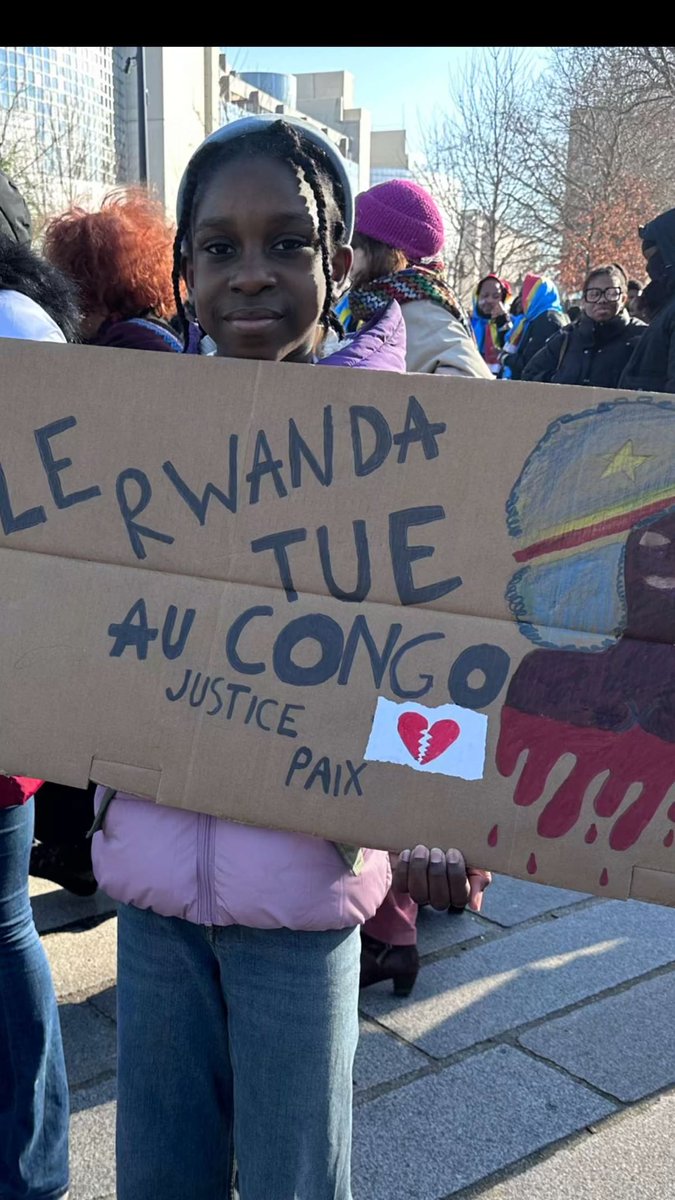 LE RWANDA
TUE
AU CONGO
JUSTICE
PAIX